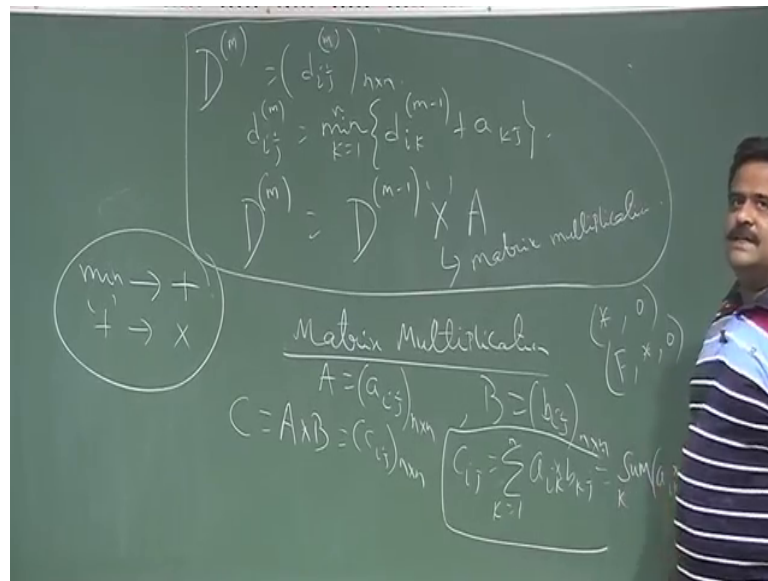 D^(m) = (d_ij^(m))_nxn.
d_ij^(m) = min_{k=1}^{n} {d_ik^(m-1) + a_kj}.
D^(m) = D^(m-1) 'X' A
↳ matrix multiplication
min → +
'+' → x
Matrix Multiplication
(*, 0)
(F, *, 0)
A = (a_ij)_nxn , B = (b_ij)_nxn
C = AxB = (c_ij)_nxn
c_ij = Σ_{k=1}^{n} a_ik x b_kj = Sum_k (a_i